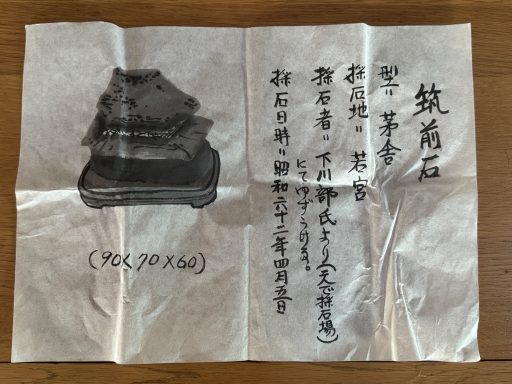 筑前石
型〃 茅舎
採石地〃 若宮
採石者〃 下川部氏より(元で採石場)
にてゆずりうける。
採石日時〃昭和六十二年四月五日
(90×70×60)